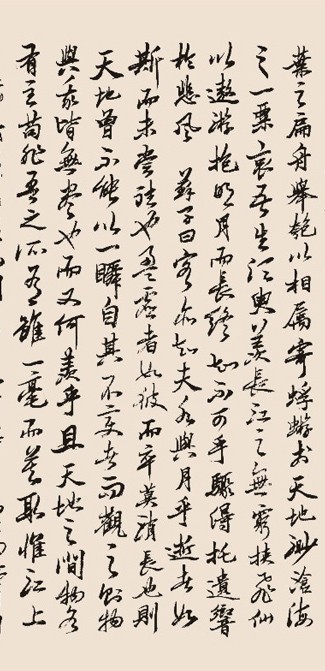 葉之扁舟舉匏以相屬寄蜉蝣於天地渺滄海
之一粟哀吾生須臾羨長江之無窮挾飛仙
以遨游抱明月而長終知不可乎驟得托遺響
於悲風 蘇子曰客亦知夫水與月乎逝者如
斯而未嘗往也盈虛者如彼而卒莫消長也則
天地曾不能以一瞬自其不變者而觀之則物
與我皆無盡也而又何羨乎且天地之間物各
有主苟非吾之所有雖一毫而莫取惟江上